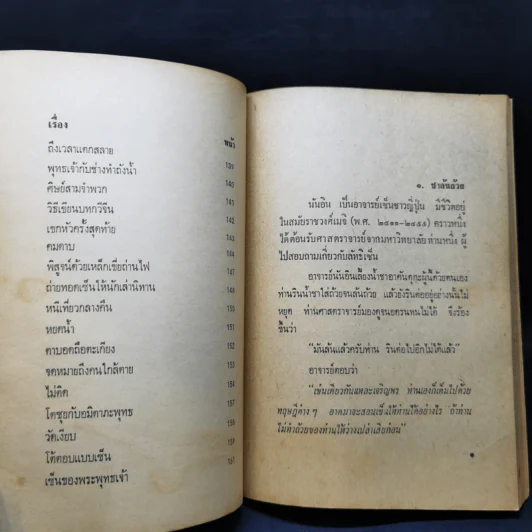 เรื่อง
หน้า
ถึงเวลาแตกสลาย
๑๓๙
พุทธเจ้ากับช่างทำถังน้ำ
๑๔๐
ศิษย์สามจำพวก
วิธีเขียนบทกวีจีน
เขกหัวครั้งสุดท้าย
คมดาบ
พิสูจน์ด้วยเหล็กเขี่ยถ่านไฟ
ถ่ายทอดเซ็นให้นักเล่านิทาน
หนีเที่ยวกลางคืน
หยดน้ำ
ตาบอดถือตะเกียง
จดหมายถึงคนใกล้ตาย
ไม่ติด
โตซุยกับอมิตาภะพุทธ
วัดเงียบ
โต้ตอบแบบเซ็น
เซ็นของพระพุทธเจ้า
๑. ชาล้นถ้วย
นันอิน เป็นอาจารย์เซ็นชาวญี่ปุ่น มีชีวิตอยู่
ในสมัยราชวงศ์เมจิ (พ.ศ. ๒๔๑๑-๒๔๕๕) คราวหนึ่ง
ได้ต้อนรับศาสตราจารย์จากมหาวิทยาลัยท่านหนึ่ง ผู้
ไปสอบถามเกี่ยวกับลัทธิเซ็น
อาจารย์นันอินเลี้ยงน้ำชาอาคันตุกะผู้นี้ด้วยตนเอง
ท่านรินน้ำชาใส่ถ้วยจนล้นถ้วย แล้วยังรินต่ออยู่อย่างนั้นไม่
หยุด ท่านศาสตราจารย์มองดูจนอดรนทนไม่ได้ จึงร้อง
ขึ้นว่า
"มันล้นแล้วครับท่าน รินต่อไปอีกไม่ได้แล้ว"
อาจารย์ตอบว่า
"เช่นเดียวกันแหละเจริญพร ท่านเองก็เต็มไปด้วย
ทฤษฎีต่าง ๆ อาตมาจะสอนเซ็นให้ท่านได้อย่างไร ถ้าท่าน
ไม่ทำถ้วยของท่านให้ว่างเปล่าเสียก่อน"